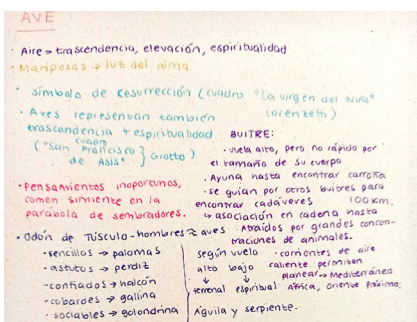 AVE
· Aire = trascendencia, elevación, espiritualidad
· Mariposas → luz del alma
· símbolo de Resurrección (cuadro "La virgen del Niño" Lorenzetti)
· Aves representan también
trascendencia + espiritualidad
(cuadro "San Francisco de Asís" } Giotto)
· Pensamientos inoportunos,
comen simiente en la
parábola de sembradores.
· Odón de Túsculo - hombres ≈ aves
· sencillos → palomas
· astutos → perdiz
· confiados → halcón
· cobardes → gallina
· sociables → golondrina
BUITRE:
· vuela alto, pero no rápido por
el tamaño de su cuerpo
· Ayuna hasta encontrar carroña
· se guían por otros buitres para
encontrar cadáveres 100km.
↳ asociación en cadena hasta
· Atraídos por grandes concen-
traciones de animales.
· corrientes de aire
caliente permiten
planear → Mediterráneo
África, oriente próximo.
según vuelo
alto bajo
terrenal espiritual
Águila y serpiente.